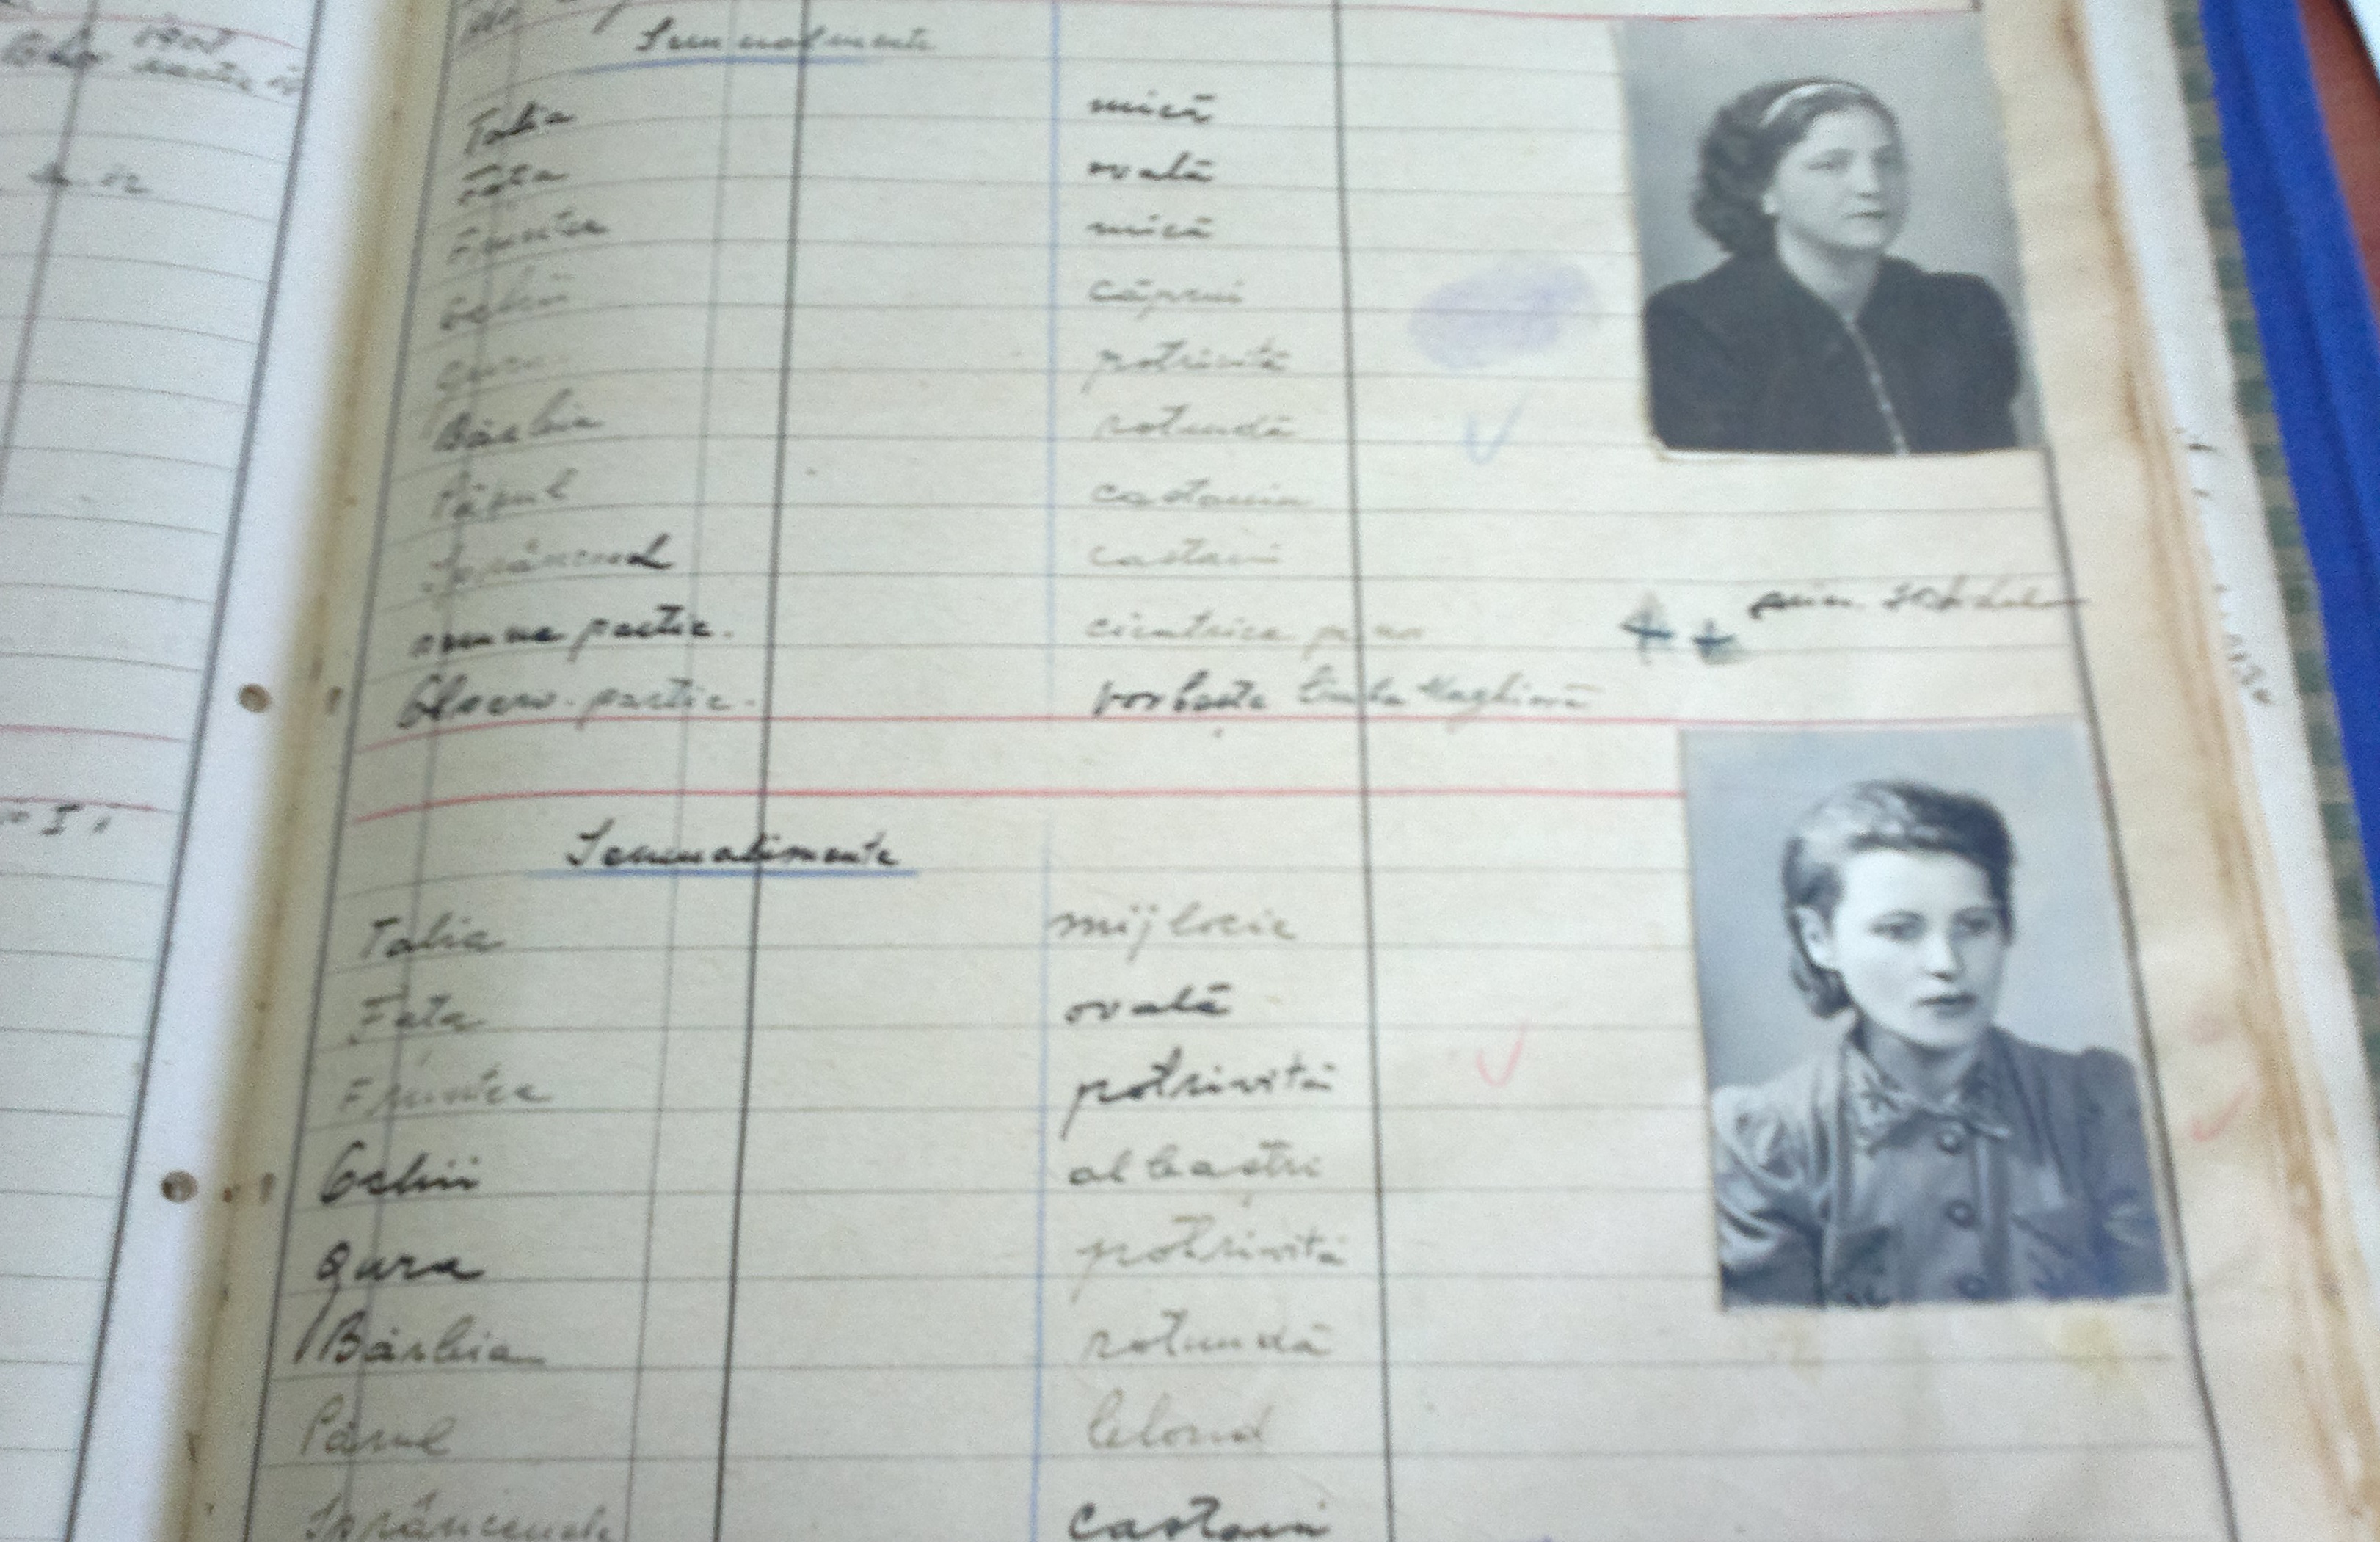 Semnalmente
Talia mică
Fața ovală
Fruntea mică
Ochii căprui
Gura potrivită
Bărbia rotundă
Părul castaniu
Sprâncenel castanii
semne partic. cicatrice pe
Observ. partic. vorbește limba Maghiară
Semnalimente
Talia mijlocie
Fața ovală
Fruntea potrivită
Ochii albaștri
Gura potrivită
Bărbia rotundă
Părul blond
Sprâncenele castanii